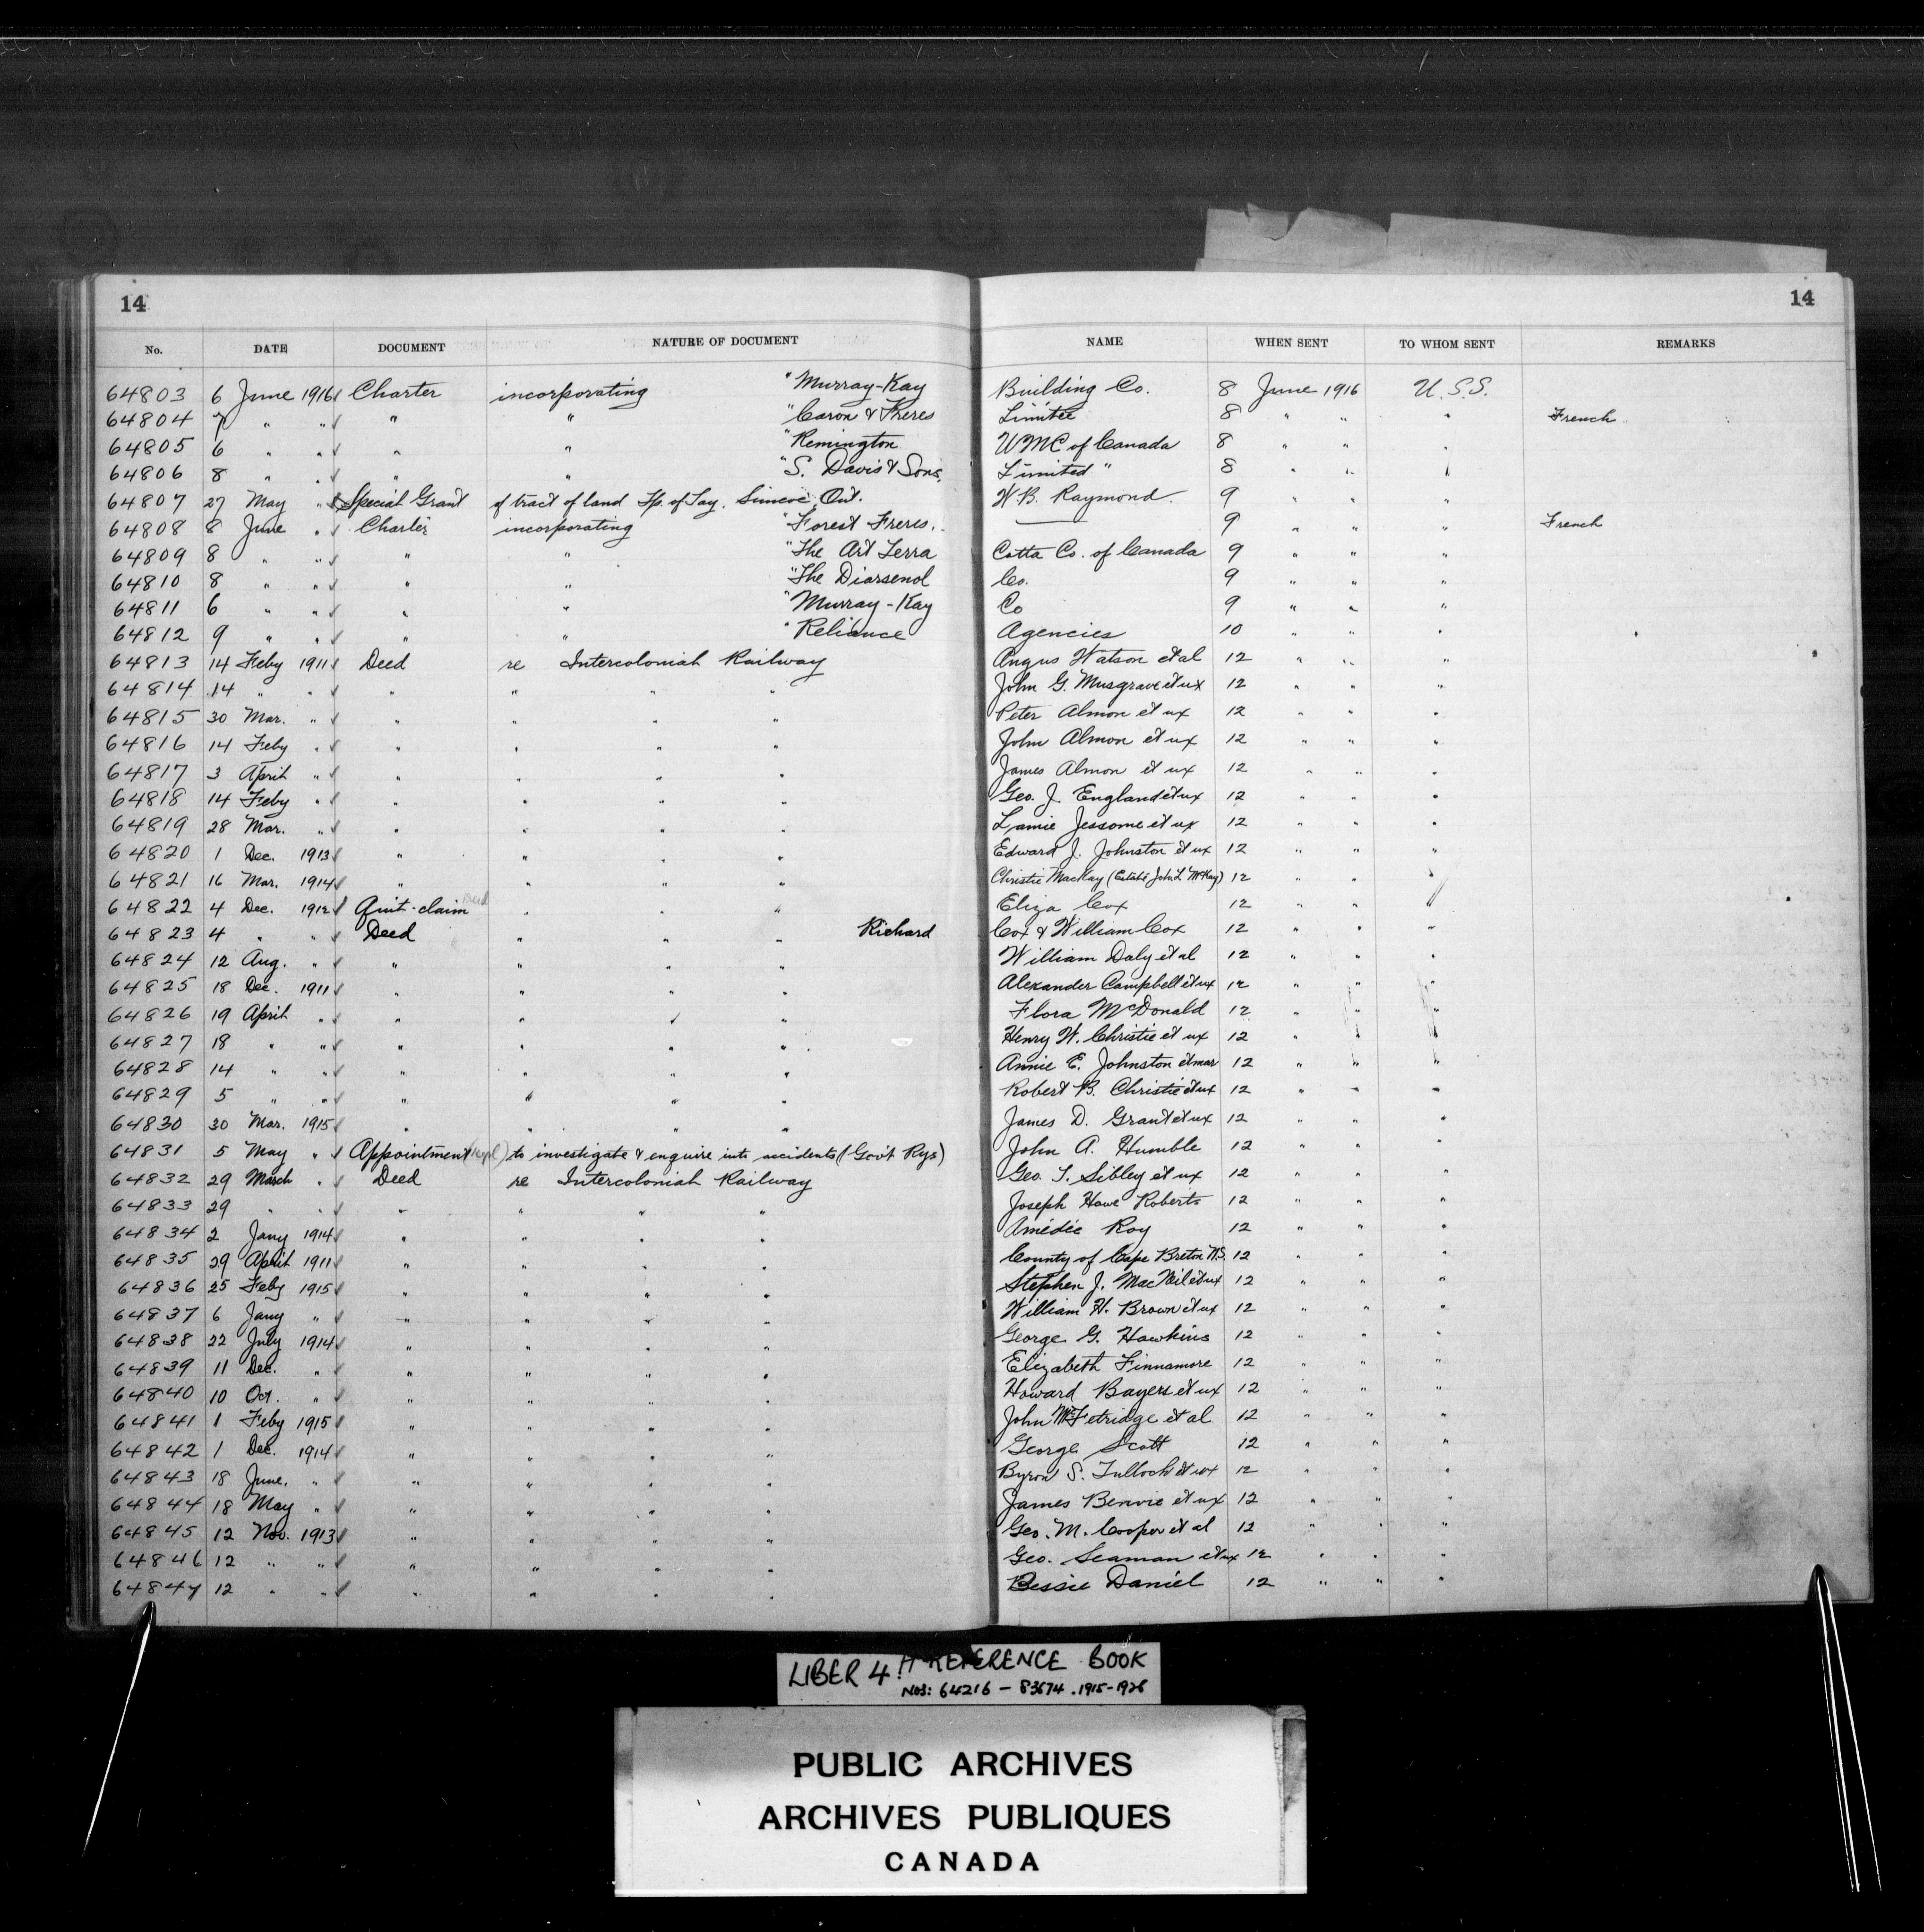 14 14
No. DATE DOCUMENT NATURE OF DOCUMENT NAME WHEN SENT TO WHOM SENT REMARKS
64803 6 June 1916 Charter incorporating "Murray-Kay Building Co. 8 June 1916 U.S.S.
64804 7 " " " " "Caron & Freres Limitée 8 " " " French
64805 6 " " " " "Remington UMC of Canada 8 " " "
64806 8 " " " " "S. Davis & Sons, Limited" 8 " " "
64807 27 May " Special Grant of tract of land Tp. of Tay, Simcoe, Ont. W.B. Raymond 9 " " "
64808 8 June " Charter incorporating "Forest Freres. — 9 " " " French
64809 8 " " " " "The Art Terra Cotta Co. of Canada 9 " " "
64810 8 " " " " "The Diarsenol Co. 9 " " "
64811 6 " " " " "Murray-Kay Co 9 " " "
64812 9 " " " " "Reliance Agencies 10 " " "
64813 14 Feby 1911 Deed re Intercolonial Railway Angus Watson et al 12 " " "
64814 14 " " " " " " John G. Musgrave et ux 12 " " "
64815 30 Mar. " " " " " Peter Almon et ux 12 " " "
64816 14 Feby " " " " " John Almon et ux 12 " " "
64817 3 April " " " " " James Almon et ux 12 " " "
64818 14 Feby " " " " " Geo. J. England et ux 12 " " "
64819 28 Mar. " " " " " Lamie Jessome et ux 12 " " "
64820 1 Dec. 1913 " " " " Edward J. Johnston et ux 12 " " "
64821 16 Mar. 1914 " " " " Christie MacKay (Estate John L McKay) 12 " " "
64822 4 Dec. 1912 Quit-claim Deed " " " Eliza Cox 12 " " "
64823 4 " " Deed " " " Richard Cox & William Cox 12 " " "
64824 12 Aug. " " " " " William Daly et al 12 " " "
64825 18 Dec. 1911 " " " " Alexander Campbell et ux 12 " " "
64826 19 April " " " " " Flora McDonald 12 " " "
64827 18 " " " " " " Henry W. Christie et ux 12 " " "
64828 14 " " " " " " Annie E. Johnston et mar 12 " " "
64829 5 " " " " " " Robert B. Christie et ux 12 " " "
64830 30 Mar. 1915 " " " " James D. Grant et ux 12 " " "
64831 5 May " Appointment to investigate & enquire into accidents (Gov't Rys) John A. Humble 12 " " "
64832 29 March " Deed re Intercolonial Railway Geo. T. Sibley et ux 12 " " "
64833 29 " " " " " " Joseph Howe Roberts 12 " " "
64834 2 Jany 1914 " " " " Amédée Roy 12 " " "
64835 29 April 1911 " " " " County of Cape Breton N.S. 12 " " "
64836 25 Feby 1915 " " " " Stephen J. MacNeil et ux 12 " " "
64837 6 Jany " " " " " William H. Brown et ux 12 " " "
64838 22 July 1914 " " " " George G. Hawkins 12 " " "
64839 11 Dec. " " " " " Elizabeth Finnamore 12 " " "
64840 10 Oct. " " " " " Howard Bayers et ux 12 " " "
64841 1 Feby 1915 " " " " John McFetridge et al 12 " " "
64842 1 Dec. 1914 " " " " George Scott 12 " " "
64843 18 June. " " " " " Byron S. Tulloch et ux 12 " " "
64844 18 May " " " " " James Benvie et ux 12 " " "
64845 12 Nov. 1913 " " " " Geo. M. Cooper et al 12 " " "
64846 12 " " " " " " Geo. Seaman et ux 12 " " "
64847 12 " " " " " " Bessie Daniel 12 " " "
LIBER 4 H REFERENCE BOOK
NOS: 64216 – 83674 . 1915-1928
PUBLIC ARCHIVES
ARCHIVES PUBLIQUES
CANADA